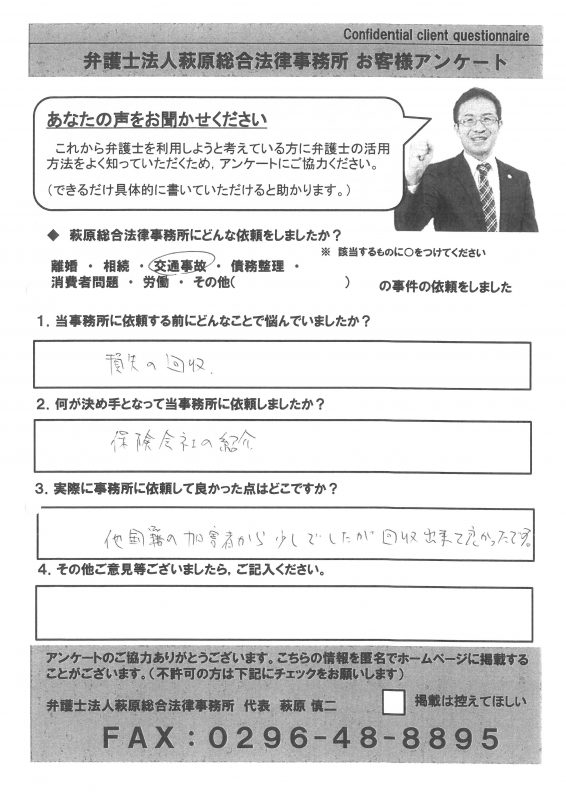 Confidential client questionnaire
弁護士法人萩原総合法律事務所 お客様アンケート
あなたの声をお聞かせください
これから弁護士を利用しようと考えている方に弁護士の活用
方法をよく知っていただくため，アンケートにご協力ください。
（できるだけ具体的に書いていただけると助かります。）
◆ 萩原総合法律事務所にどんな依頼をしましたか？
※ 該当するものに○をつけてください
離婚 ・ 相続 ・ 交通事故 ・ 債務整理 ・
消費者問題 ・ 労働 ・ その他( ) の事件の依頼をしました
1．当事務所に依頼する前にどんなことで悩んでいましたか？
損失の回収．
2．何が決め手となって当事務所に依頼しましたか？
保険会社の紹介
3．実際に事務所に依頼して良かった点はどこですか？
他国籍の加害者から少しでしたが回収出来て良かったです。
4．その他ご意見等ございましたら，ご記入ください。
アンケートのご協力ありがとうございます。こちらの情報を匿名でホームページに掲載する
ことがございます。（不許可の方は下記にチェックをお願いします）
弁護士法人萩原総合法律事務所 代表 萩原 慎二
掲載は控えてほしい
FAX：0296-48-8895